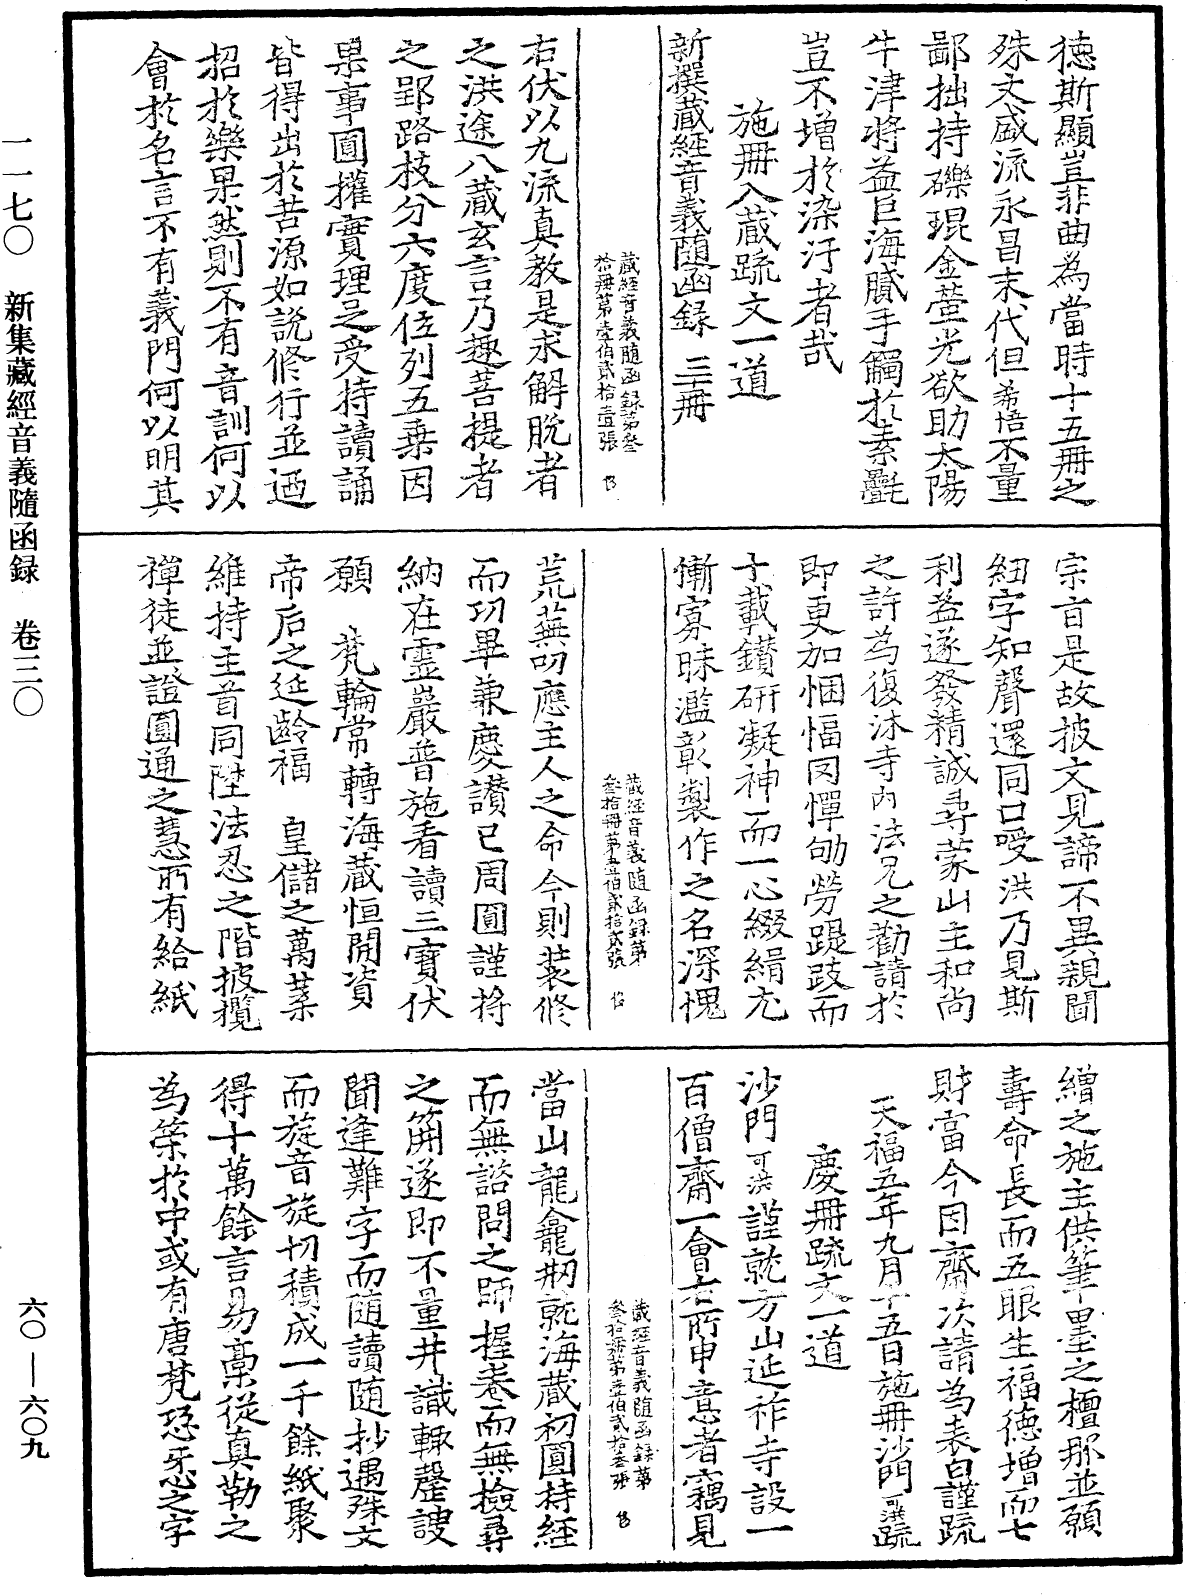 德斯顯豈非曲為當時十五冊之
殊文盛流永昌末代但希悟不量
鄙拙持礫琨金螢光欲助太陽
牛津將益巨海膩手觸於素㲲
豈不增於染汙者哉
施冊入藏䟽文一道
新撰藏經音義隨函錄 三十冊
藏經音義隨函錄第叁
拾冊第壹伯貳拾壹張
右伏以九流真教是求解脫者
之洪途八藏玄言乃趣菩提者
之郢路枝分六度位列五乗因
果事圓權實理足受持讀誦
皆得出於苦源如說修行並迺
招於樂果然則不有音訓何以
會於名言不有義門何以明其
宗㫖是故披文見諦不異親聞
紐字知聲還同口受洪乃見斯
利益遂發精誠尋蒙山主和尚
之許為復沐寺内法兄之勸請於
即更加悃愊罔憚劬勞踶跂而
十載鑚研凝神而一心綴緝尢
慚寡昧濫彰製作之名深愧
藏經音義隨函錄第
叁拾冊第壹伯貳拾貳張
荒蕪叨應主人之命今則裝修
而功畢兼慶讃已周圓謹將
納在靈巖普施看讀三寳伏
願 梵輪常轉海藏恒開資
帝后之延齡福 皇儲之萬葉
維持主首同陞法忍之階披攬
禪徒並證圓通之慧所有給紙
繒之施主供筆墨之檀那並願
壽命長而五眼生福德增而七
財富今因齋次請為表白謹䟽
天福五年九月十五日施冊沙門可洪䟽
慶冊䟽文一道
沙門可洪謹就方山延祚寺設一
百僧齋一會右所申意者竊見
藏經音義隨函錄第
叁拾冊第壹伯貳拾叁張
當山龍龕剏就海藏初圓持經
而無諮問之師握卷而無檢尋
之䇶遂即不量井識輙罄謏
聞逢難字而隨讀隨抄遇殊文
而旋音旋切積成一千餘紙聚
得十萬餘言易藁從真勒之
為䇿於中或有唐梵㳂牙之字
一一七〇 新集藏經音義隨函録 卷三〇
六〇—六〇九